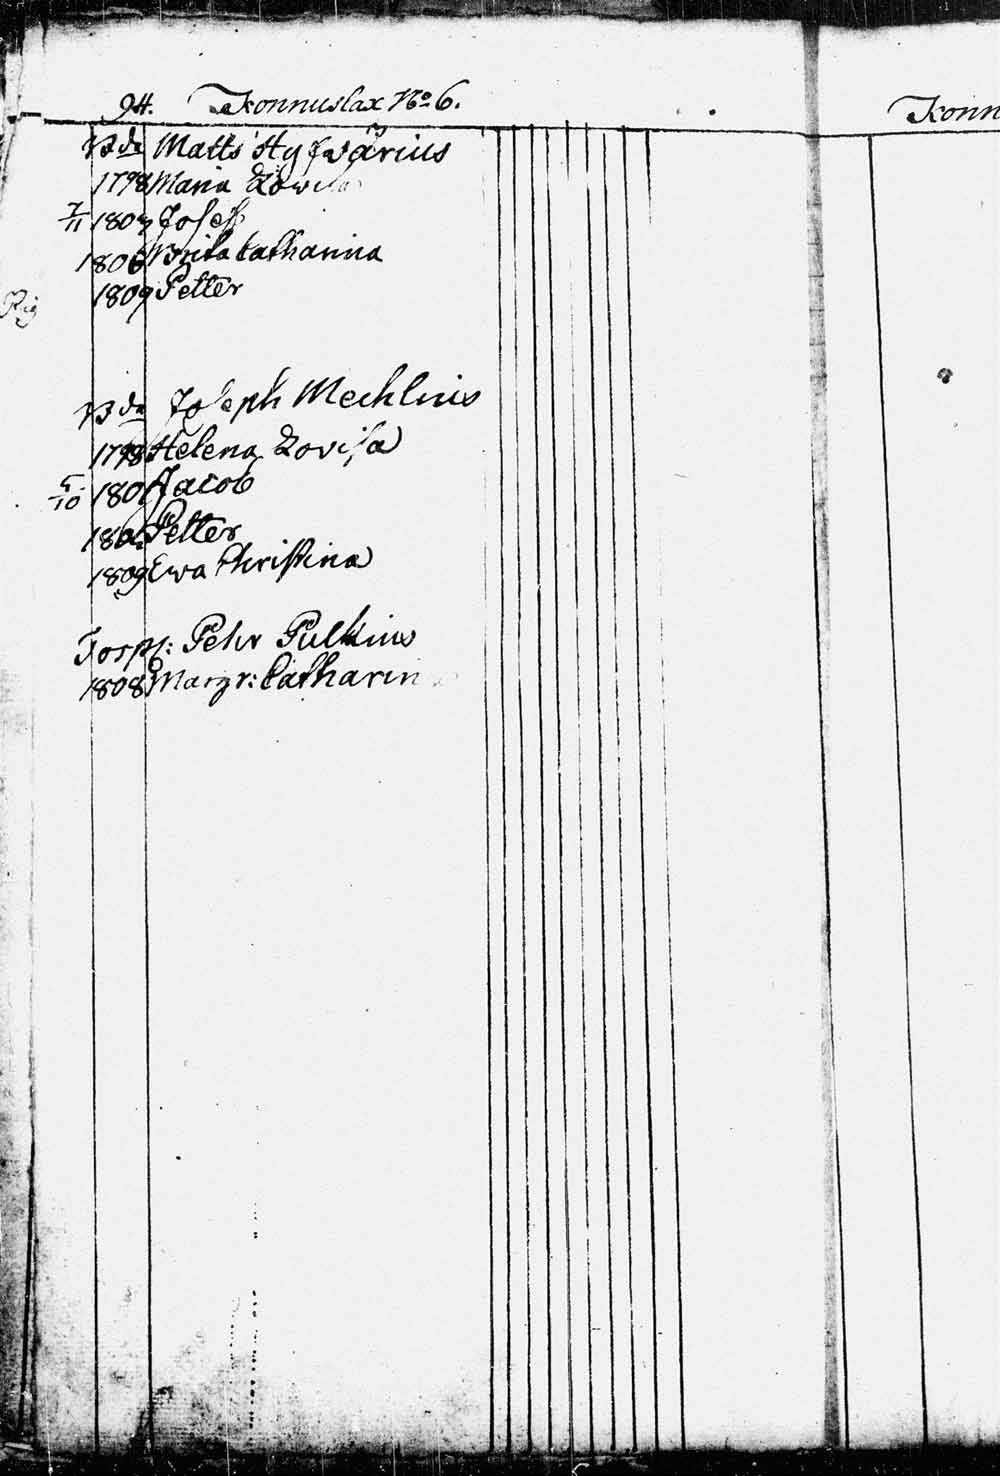 94. Konnuslax No 6.
Bde Matts Hyfwärius
1798 Maria Lowisa
7/11 1803 Josef
1806 Brita Catharina
1809 Petter
Bde Joseph Mechlins
1798 Helena Lovisa
5/10 1801 Jacob
Petter
1809 Ewa Christina
Torp: Pehr Pulkins
1808 Margr: Catharin
Konn